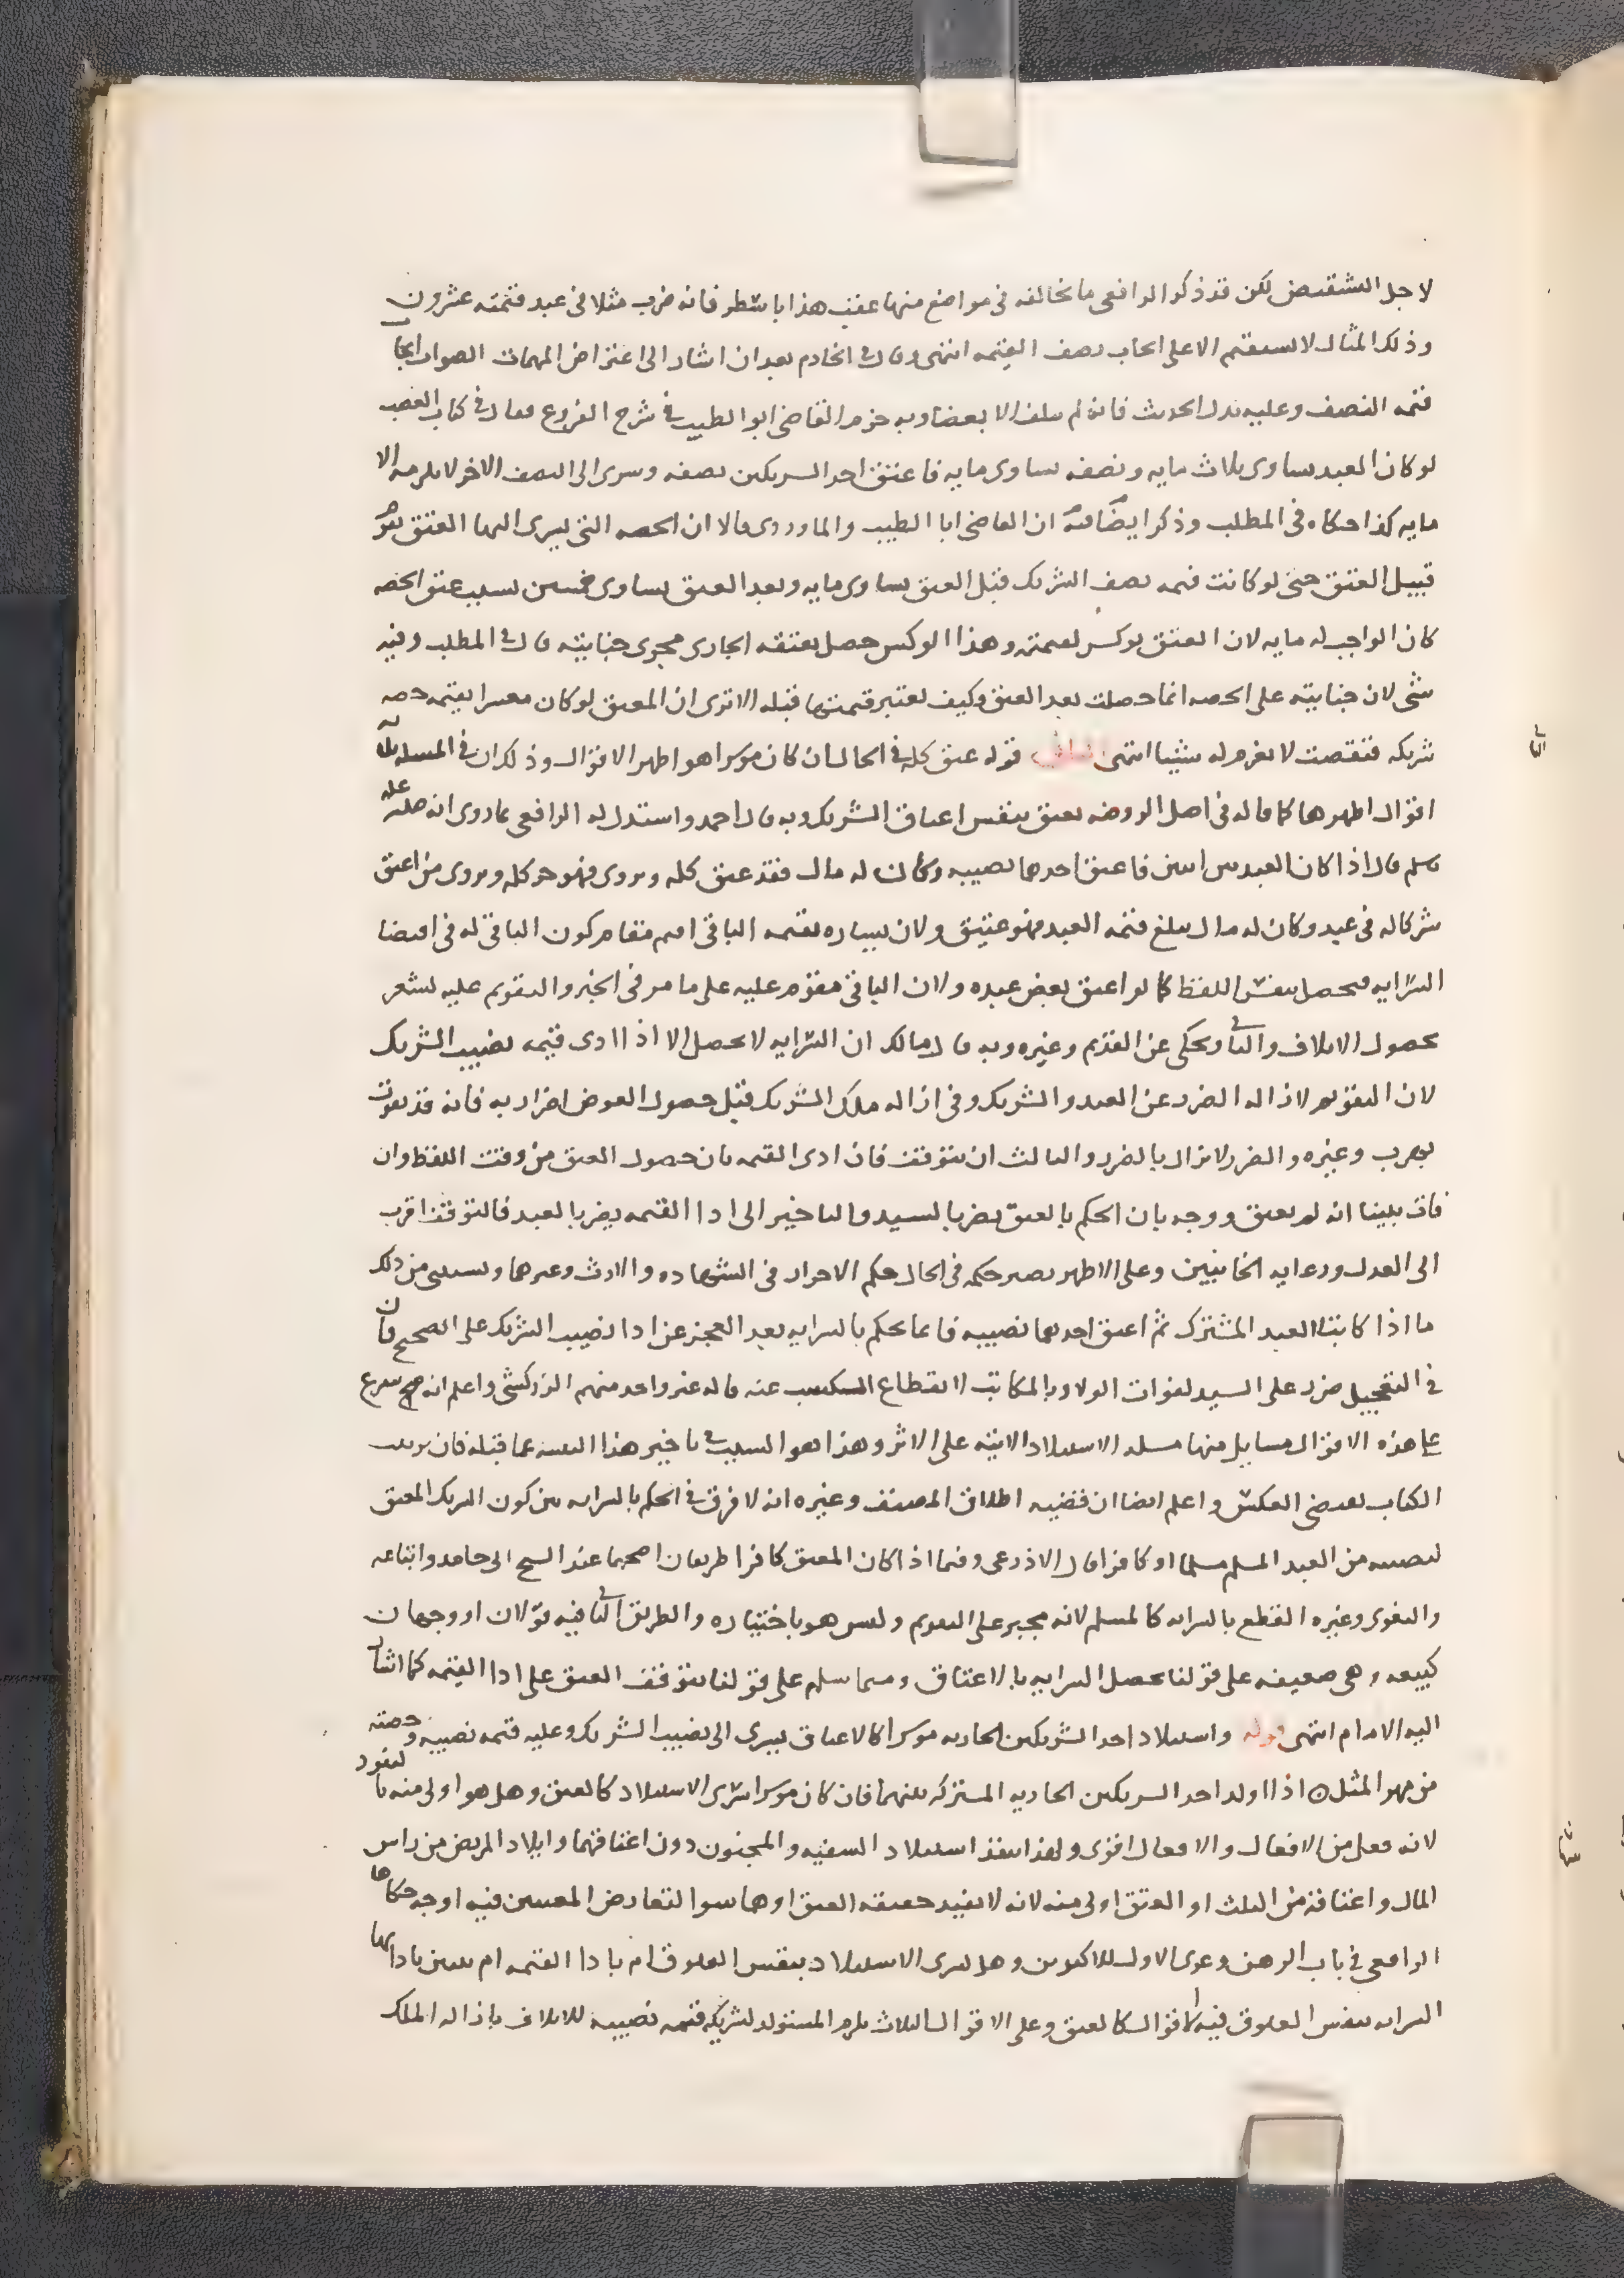 لاجل التشقيص لكن قد ذكر الرافعي ما يخالفه في مواضع منها عقب هذا باسطر فانه ضرب مثلا في عبد قيمته عشرون
وذلك المثال لا يستقيم الا على ايجاب نصف القيمة انتهى وقال في الخادم بعد ان اشار الى اعتراض المهمات الصواب ايجاب
قيمة النصف وعليه يدل الحديث فانه لم يتلف الا بعضا وبه جزم القاضي ابو الطيب في شرح الفروع فقال في كتاب الغصب
لو كان العبد يساوي ثلاث مايه ونصفه يساوي مايه فاعتق احد الشريكين نصفه وسرى الى النصف الاخر لا يلزمه الا
مايه كذا حكاه في المطلب وذكر ايضا ان القاضي ابا الطيب والماوردي قالا ان الحصه التي يسري اليها العتق تقوم
قبيل العتق حتى لو كانت قيمه نصف الشريك قبل العتق يساوي مايه وبعد العتق يساوي خمسين بسبب عتق الحصه
كان الواجب له مايه لان العتق يوكس لقيمته وهذا الوكس حصل بعتقه الجاري مجرى جنايته قال في المطلب وفيه
شي لان جنايته على الحصه انما حصلت بعد العتق وكيف تعتبر قيمتها قبله الا ترى ان المعتق لو كان معسرا بقيمه حصه
شريكه فنقصت لا يغرم له شيئا انتهى قوله عتق كله في الحال ان كان موسرا هو اظهر الاقوال وذلك ان في المسله ثلاثه
اقوال اظهرها كما قاله في اصل الروضه يعتق بنفس اعتاق الشريك وبه قال احمد واستدل له الرافعي بما روي انه صلى الله عليه
وسلم قال اذا كان العبد بين اثنين فاعتق احدهما نصيبه وكان له مال فقد عتق كله ويروى فهو حر كله ويروى من اعتق
شركا له في عبد وكان له مال يبلغ قيمه العبد فهو عتيق ولان يساره بقيمه الباقي اقيم مقام كون الباقي له في اقتضا
السرايه فيحصل بنفس اللفظ كما لو اعتق بعض عبده ولان الباقي مقوم عليه على ما مر في الخبر والتقويم عليه يشعر
بحصول الاتلاف والثاني ويحكى عن القديم وغيره وبه قال مالك ان السرايه لا تحصل الا اذا ادى قيمه نصيب الشريك
لان التقويم لازاله الضرر عن العبد والشريك وفي ازاله ملك الشريك قبل حصول العوض اضرار به فانه قد يفوت
بهرب وغيره والضرر لا يزال بالضرر والثالث ان يتوقف فان ادى القيمه بان حصول العتق من وقت اللفظ وان
فات بينا انه لم يعتق ووجه بان الحكم بالعتق يضر بالسيد والتاخير الى ادا القيمه يضر بالعبد فالتوقف اقرب
الى العدل ورعايه الجانبين وعلى الاظهر يصير حكمه في الحال حكم الاحرار في الشهاده والارث وغيرها ويستثنى من ذلك
ما اذا كاتبا العبد المشترك ثم اعتق احدهما نصيبه فانما يحكم بالسرايه بعد العجز عن ادا نصيب الشريك على الصحيح فان
في التعجيل ضرر على السيد لفوات الولا وبالمكاتب لانقطاع الكسب عنه قاله غير واحد منهم الزركشي واعلم انه يتفرع
على هذه الاقوال مسايل منها مسله الاستيلاد الاتيه على الاثر وهذا هو السبب في تاخير هذا عما قبله فان ترتيب
الكتاب يقتضي العكس واعلم ايضا ان قضيه اطلاق المصنف وغيره انه لا فرق في الحكم بالسرايه بين كون الشريك المعتق
لنصيبه من العبد المسلم مسلما او كافرا قال الاذرعي وفيما اذا كان المعتق كافرا طريقان اصحهما عند الشيخ ابي حامد واتباعه
والبغوي وغيره القطع بالسرايه كالمسلم لانه مجبر على التقويم وليس هو باختياره والطريق الثاني فيه قولان او وجهان
كبيعه وهي ضعيفه على قولنا تحصل السرايه بالاعتاق على قولنا يتوقف العتق على ادا القيمه كما اشار
اليه الامام انتهى قوله واستيلاد احد الشريكين الجاريه موسرا كالاعتاق يسري الى نصيب الشريك وعليه قيمه نصيبه وحصته
من مهر المثل اذا اولد احد الشريكين الجاريه المشتركه بينهما فان كان موسرا سرى الاستيلاد كالعتق وهل هو اولى منه بالنفوذ
لانه فعل من الافعال والافعال اقوى ولهذا ينفذ استيلاد السفيه والمجنون دون اعتاقهما وايلاد المريض من راس
المال واعتاقه من الثلث او العتق اولى منه لانه لا يفيد حقيقه العتق او هما سوا لتعارض المعنيين فيه اوجه حكاها
الرافعي في باب الرهن وعزى الاول للاكثرين وهل يسري الاستيلاد بنفس العلوق ام بادا القيمه ام يتبين بادائها
السرايه بنفس العلوق فيه الاقوال كالعتق وعلى الاقوال الثلاث يلزم المستولد لشريكه قيمه نصيبه للاتلاف بازاله الملك